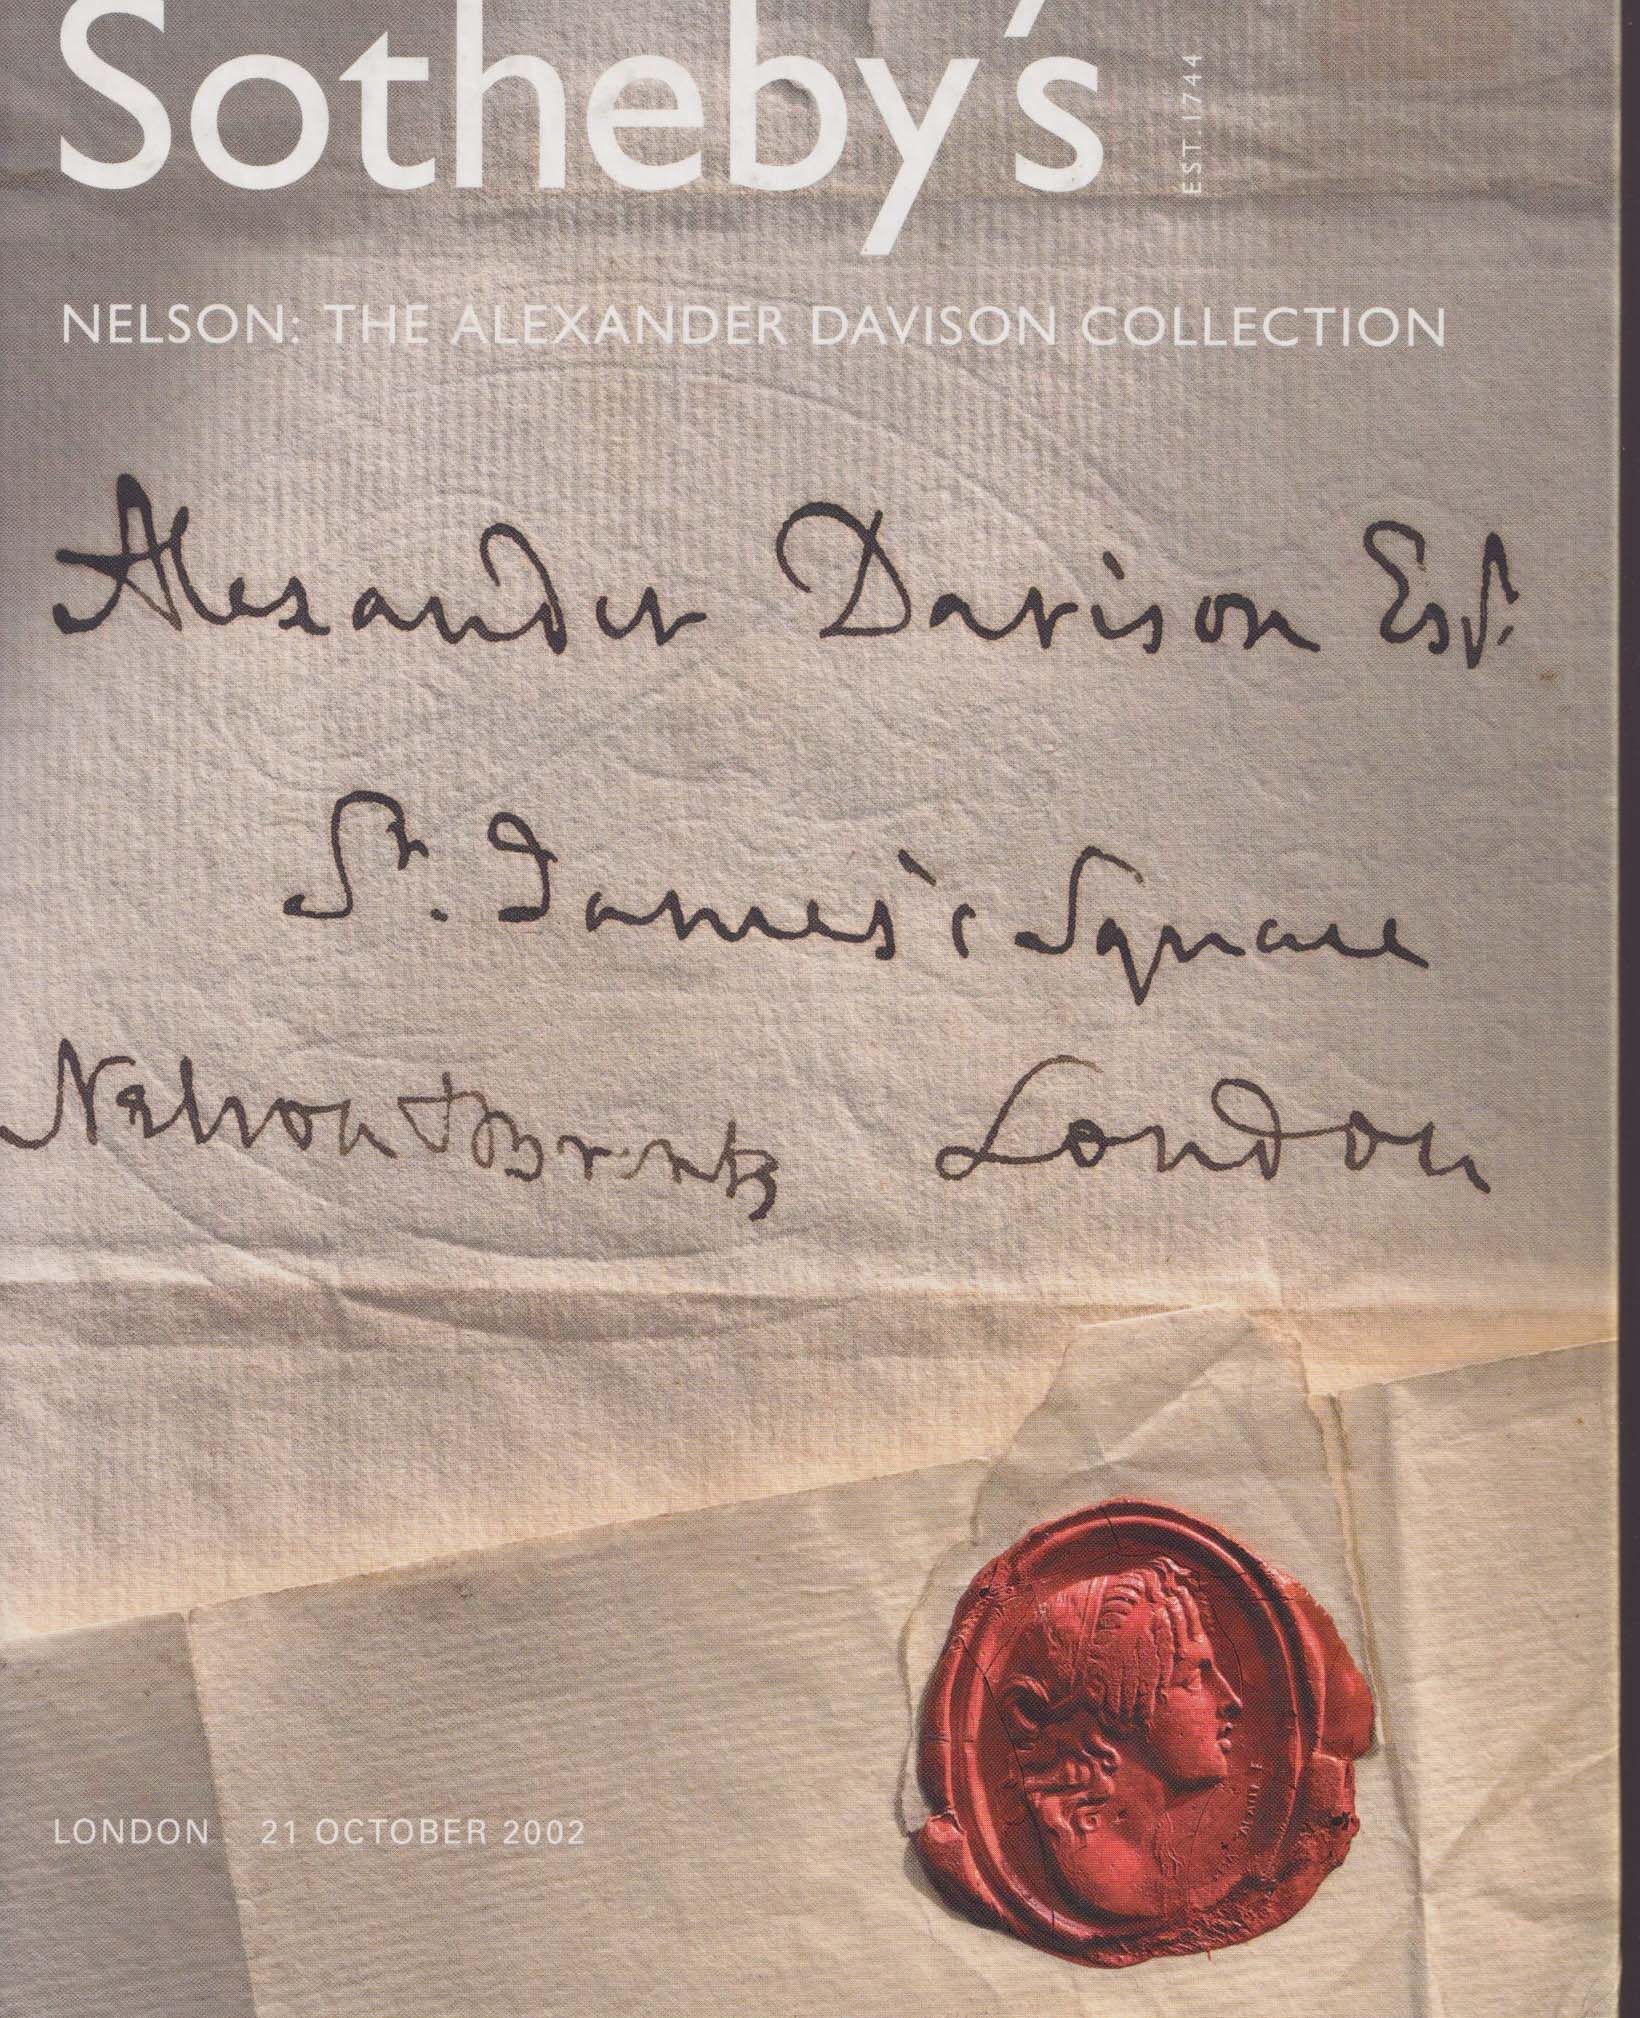 Sotheby's
EST. 1744
NELSON: THE ALEXANDER DAVISON COLLECTION
Alexander Davison Esqr.
St. James's Square
Nelson & Bronte London
LONDON 21 OCTOBER 2002